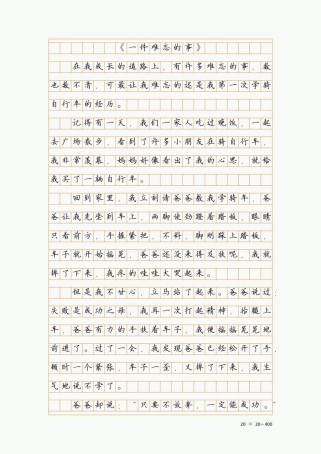 《一件难忘的事》
在我成长的道路上，有许多难忘的事，数
也数不清，可最让我难忘的还是我第一次学骑
自行车的经历。
记得有一天，我们一家人吃过晚饭，一起
去广场散步，看到了许多小朋友在骑自行车，
我非常羡慕，妈妈好像看出了我的心思，就给
我买了一辆自行车。
回到家里，我立刻请爸爸教我学骑车，爸
爸让我先坐到车上，两脚使劲蹬着踏板，眼睛
只看前方，手握紧把，不料，脚刚踩上踏板，
车子就开始摇晃，爸爸还没来得及扶呢，我就
摔了下来，我疼的哇哇大哭起来。
但是我不甘心，立马站了起来。爸爸说过：
失败是成功之母，我再一次打起精神，抬腿上
车，爸爸有力的手扶着车子，我便摇摇晃晃地
前进了。过了一会，我发现爸爸已经松开了手，
顿时一个紧张，车子一歪，又摔了下来，我生
气地说不学了。
爸爸却说：“只要不放弃，一定能成功。”
20 × 20=400